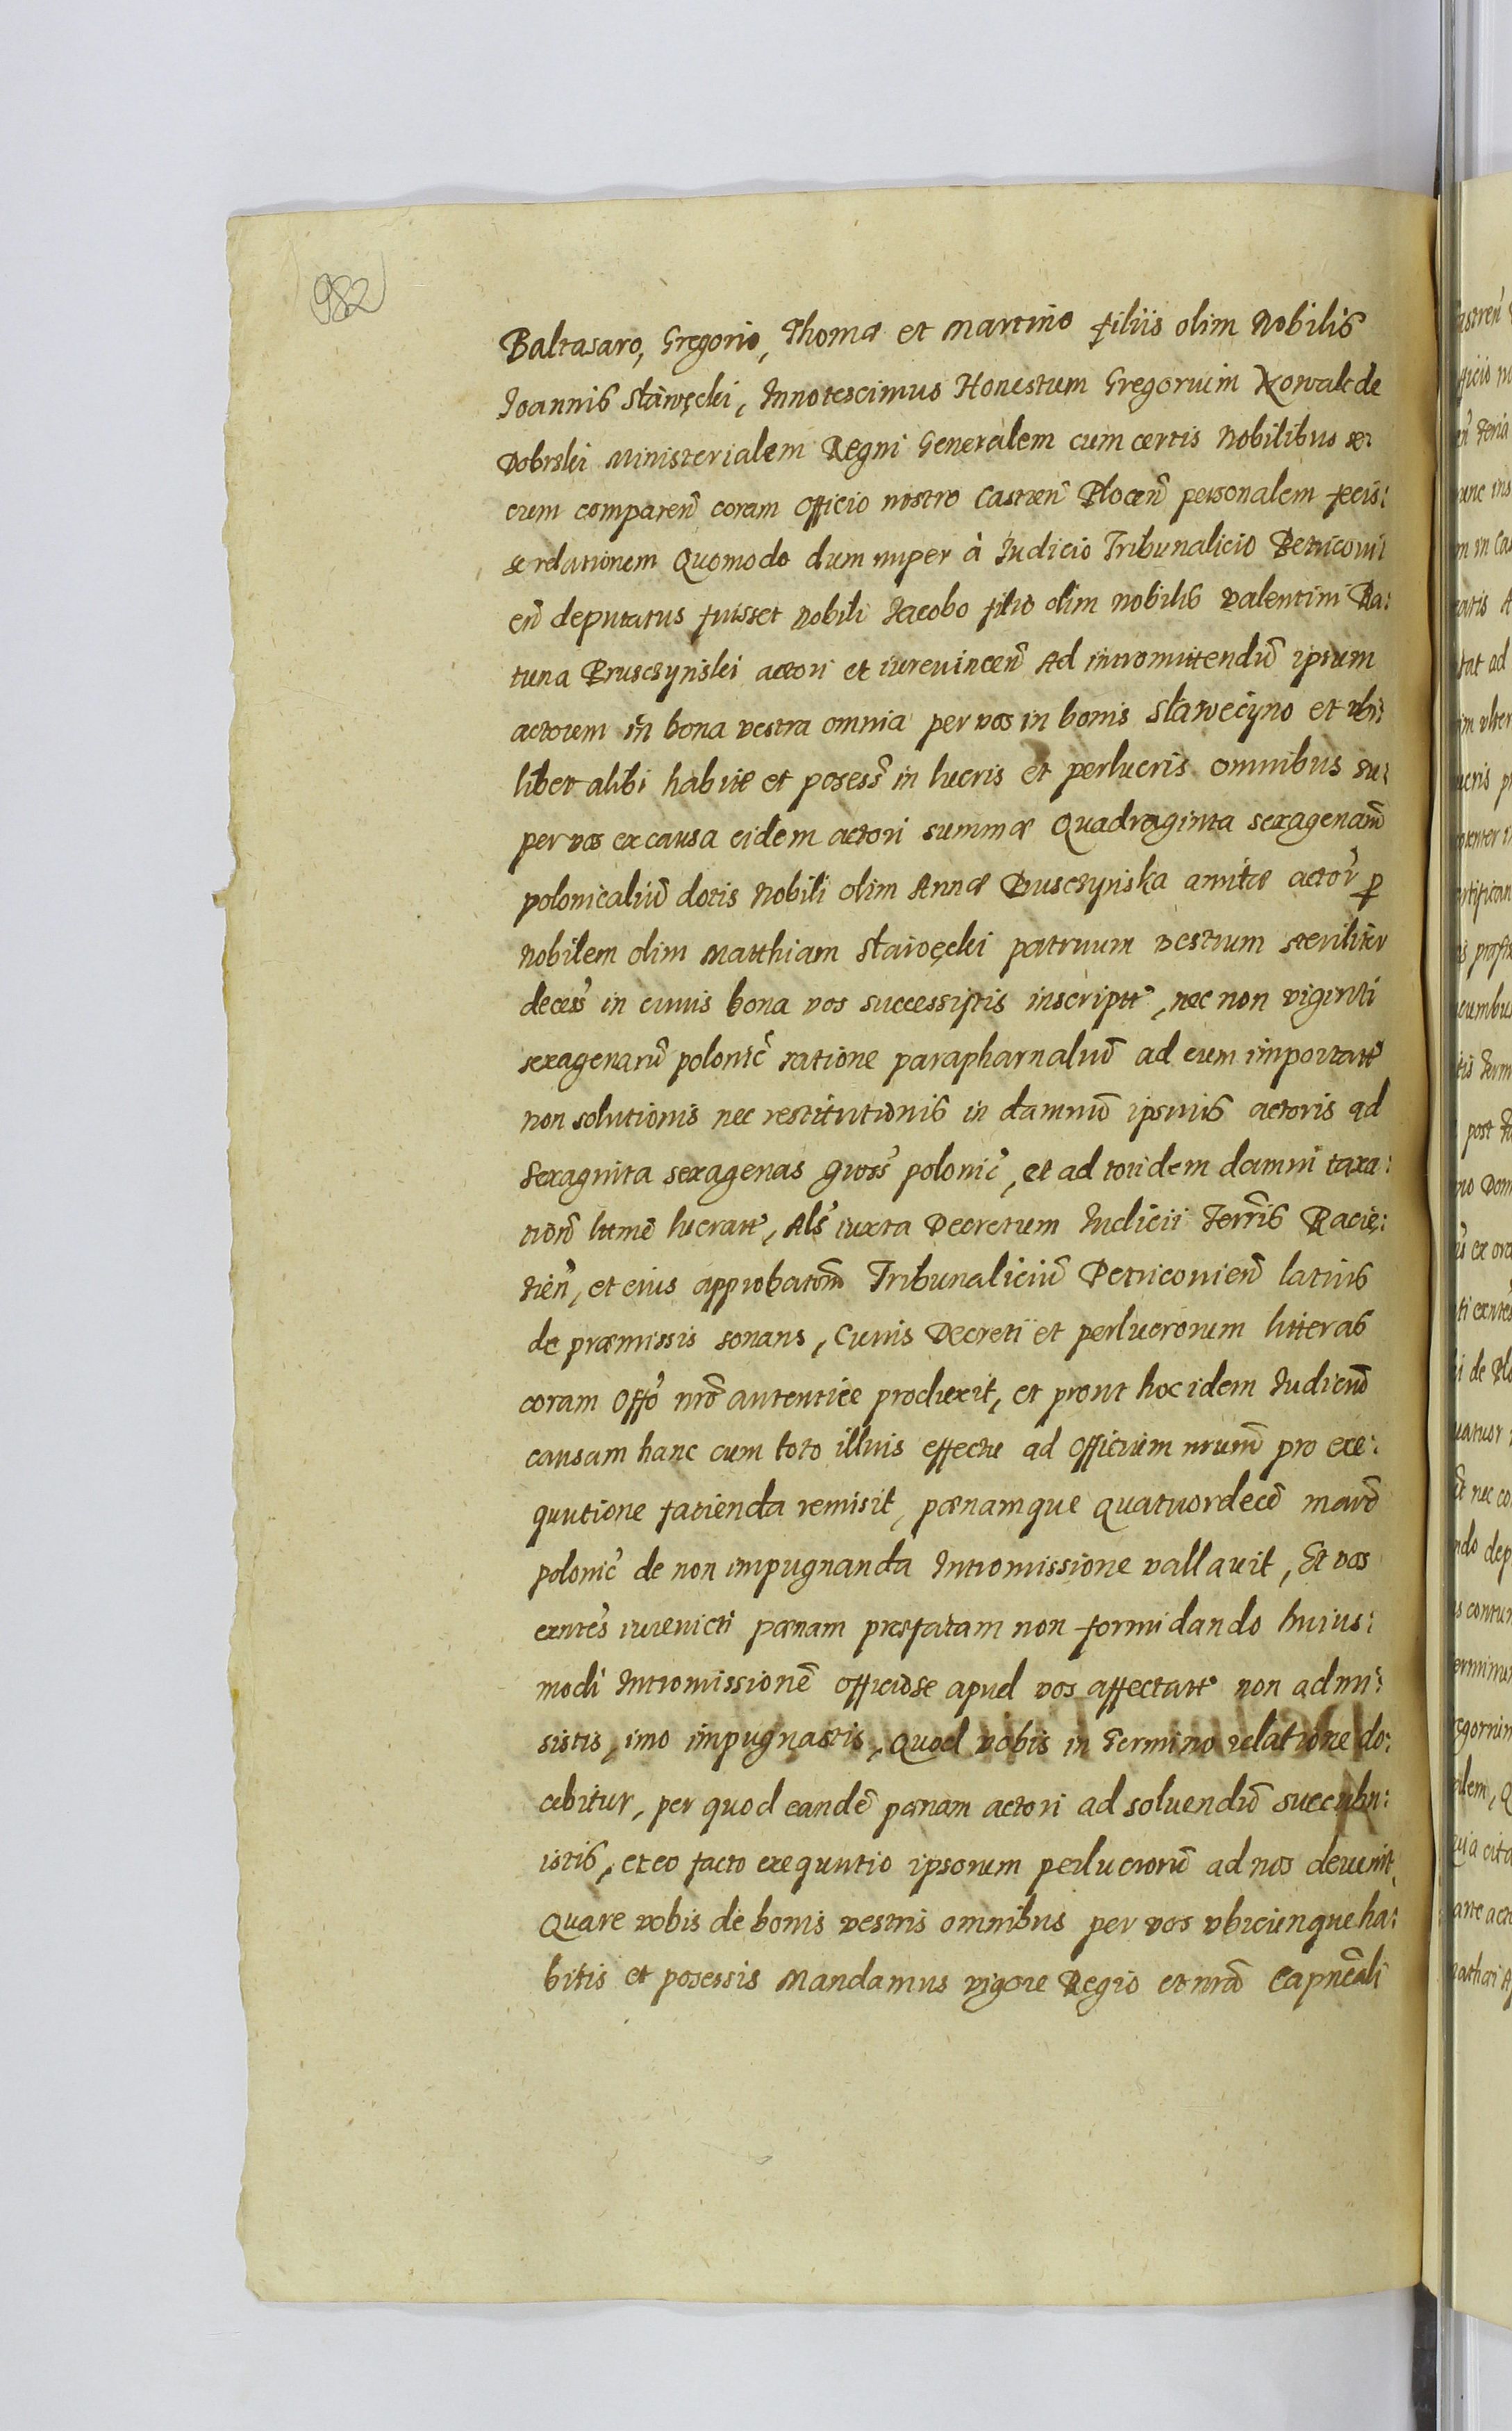 982
Baltasaro, Gregorio, Thomæ et Martino filiis olim Nobilis
Joannis Sławęcki, Innotescimus Honestum Gregorium Kowal de
Dobrski Ministerialem Regni Generalem cum certis Nobilibus se:
cum comparen̄ coram Officio nostro Castren̄ Plocen̄ personalem fecis:
se relationem Quomodo dum nuper à Iudicio Tribunalicio Petricoui
en̄ deputatus fuisset Nobili Jacobo filio olim Nobilis Valentini Ra:
tuna Brusczynski actori et iureuincen̄ Ad intromittendū ipsum
actorem in bona vestra omnia per vos in bonis Sławeciyno et vbi:
libet alibi habite et posess̄ in lucris et perlucris omnibus su:
per vos ex causa eidem actori summæ Quadraginta sexagenarū
polonicaliū dotis Nobili olim Annæ Brusczynska amitæ actor̄ p
Nobilem olim Matthiam Sławęcki patruum vestrum steriliter
decess̄ in cuius bona vos successistis inscriptt̄, nec non viginti
sexagenarū polonic̄ ratione parapharnaliū ad eum importatt̄
non solutionis nec restitutionis in damnū ipsius actoris ad
Sexaginta sexagenas gross̄ polonic̄, et ad totidem damni taxa:
tionē ltimē lucratt̄, Als̄ iuxta Decretum Iudicii Terr̄is Racią:
zien̄, et eius approbatom̄ Tribunaliciū Petricouien̄ latius
de præmissis sonans, Cuius Decreti et perlucrorum litteras
coram Offō nrō autentice produxit, et prout hoc idem Iudiciū
causam hanc cum toto illius effectu ad Officium nrum̄ pro exe:
qutione facienda remisit, pænamque quatuordecē marc̄
polonic̄ de non impugnanda Intromissione vallauit, Et vos
exntēs iureuicti pænam præfatam non formidando huius:
modi Intromissionē officiose apud vos affectatt̄ non admi:
sistis, imo impugnastis, Quod vobis in Termino relatione do:
cebitur, per quod eandē pænam actori ad soluendū succubu:
istis, et eo facto exequutio ipsorum perlucrorū ad nos deuenit,
Quare vobis de bonis vestris omnibus per vos vbicunque ha:
bitis et posessis Mandamus vigore Regio et nrā Capnēali